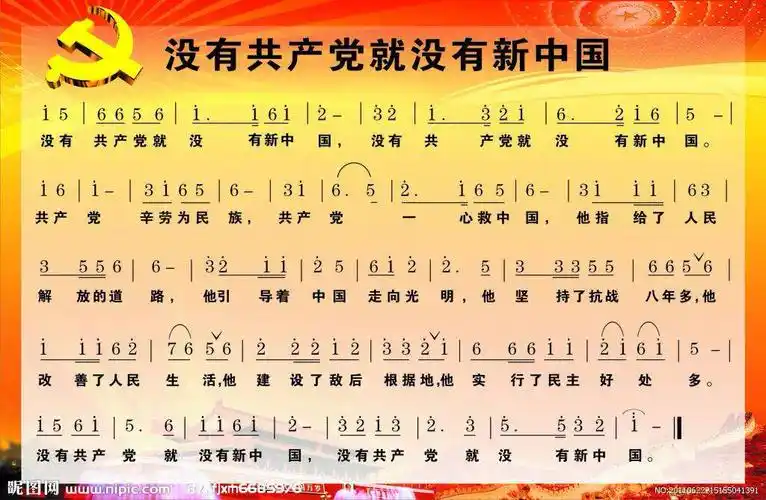 没有共产党就没有新中国
1̇ 5 | 6 6 5 6 | 1̇. 1̇ 6 1̇ | 2̇ - | 3̇ 2̇ | 1̇. 3̇ 2̇ 1̇ | 6. 2̇ 1̇ 6 | 5 - |
没有 共产党就 没 有新中 国， 没有 共 产党就 没 有新中 国。
1̇ 6 | 1̇ - | 3̇ 1̇ 6 5 | 6 - | 3̇ 1̇ | 6. 5 | 2̇. 1̇ 6 5 | 6 - | 3̇ 1̇ 1̇ 1̇ | 6 3 |
共产 党 辛劳为民 族， 共产 党 一 心救中 国， 他指 给了 人民
3 5 5 6 | 6 - | 3̇ 2̇ 1̇ 1̇ | 2̇ 5 | 6 1̇ 2̇ | 2̇. 5 | 3 3 3 5 5 | 6 6 5 ∨ 6 |
解 放的道 路， 他引 导着 中国 走向光 明，他 坚 持了抗战 八年多,他
1̇ 1̇ 1̇ 6 2̇ | 7 6 5 ∨ 6 | 2̇ 2̇ 2̇ 1̇ 2̇ | 3̇ 3̇ 2̇ ∨ 1̇ | 6 6 6 1̇ 1̇ | 2̇ 1̇ 6 1̇ | 5 - |
改 善了人民 生 活,他 建 设了敌后 根据地,他 实 行了民主 好 处 多。
1̇ 5 6 1̇ | 5. 6 | 1̇ 1̇ 6 1̇ | 2̇ - | 3̇ 2̇ 1̇ 3̇ | 2̇. 3̇ | 5̇. 5̇ 3̇ 2̇ | 1̇ - ‖
没有共产 党 就 没有新中 国， 没有共产 党 就 没 有新中 国。
昵图网 www.nipic.com